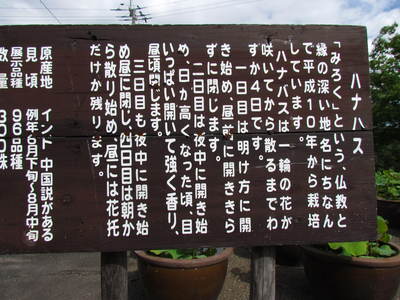 ハナハス
「みろくという、仏教と
縁の深い地名にちなん
で平成10年から栽培
しています。
ハナバスは一輪の花が
咲いてから散るまでわ
ずか4日です。
一日目は明け方に開
き始め、昼前に開ききら
ずに閉じます。
二日目は夜中に開き始
め、日が高くなった頃、目
いっぱい開いて強く香り、
昼頃閉じます。
三日目も夜中に開き始
め昼に閉じ、四日目は朝か
ら散り始め、昼には花托
だけか残ります。
原産地 インド 中国説がある
見頃 例年6月下旬〜8月中旬
展示品種 96品種
数量 300株